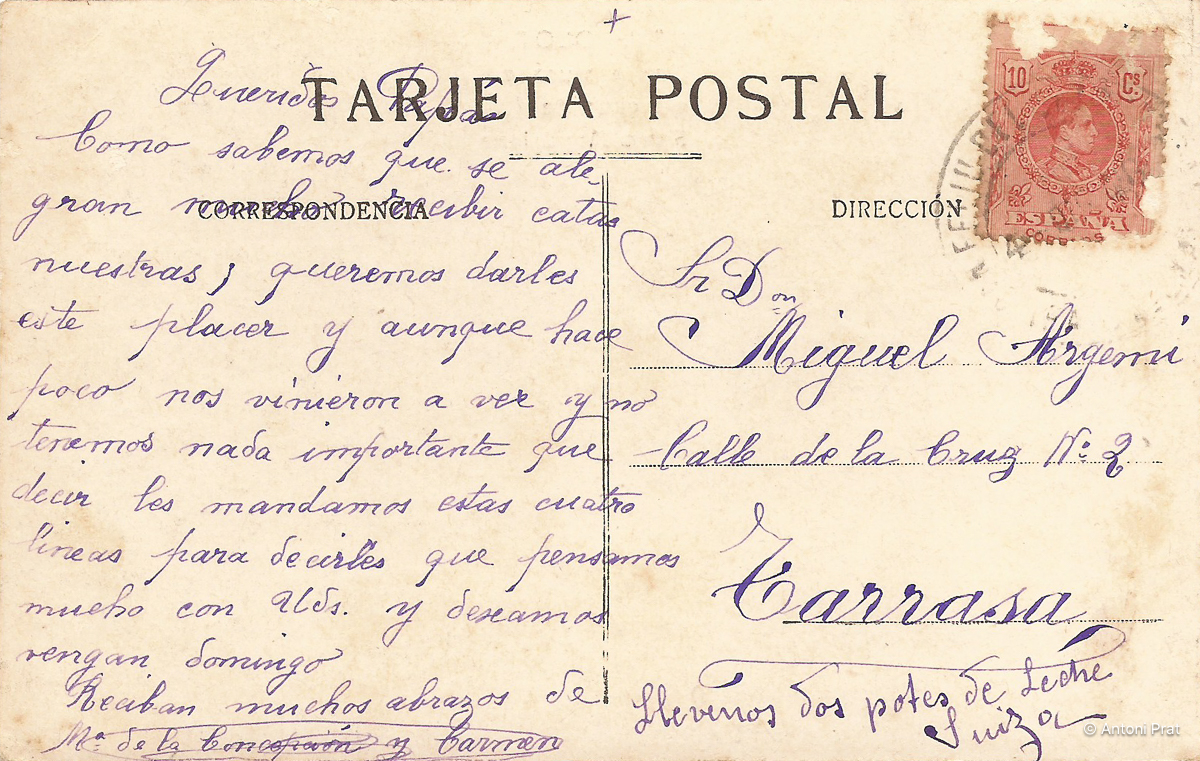 TARJETA POSTAL
CORRESPONDENCIA
Queridos Papás
Como sabemos que se ale-
gran mucho recibir catas
nuestras, queremos darles
este placer y aunque hace
poco nos vinieron a ver y no
tenemos nada importante que
decir les mandamos estas cuatro
lineas para decirles que pensamos
mucho con Uds. y deseamos
vengan domingo
Reciban muchos abrazos de
Mª de la Concepción y Carmen
DIRECCIÓN
Sr Don
Miguel Argemi
Calle de la Cruz Nº 2
Tarrasa
Llevenos dos potes de Leche
Suiza
10 Cs.
ESPAÑA
CORREOS
© Antoni Prat